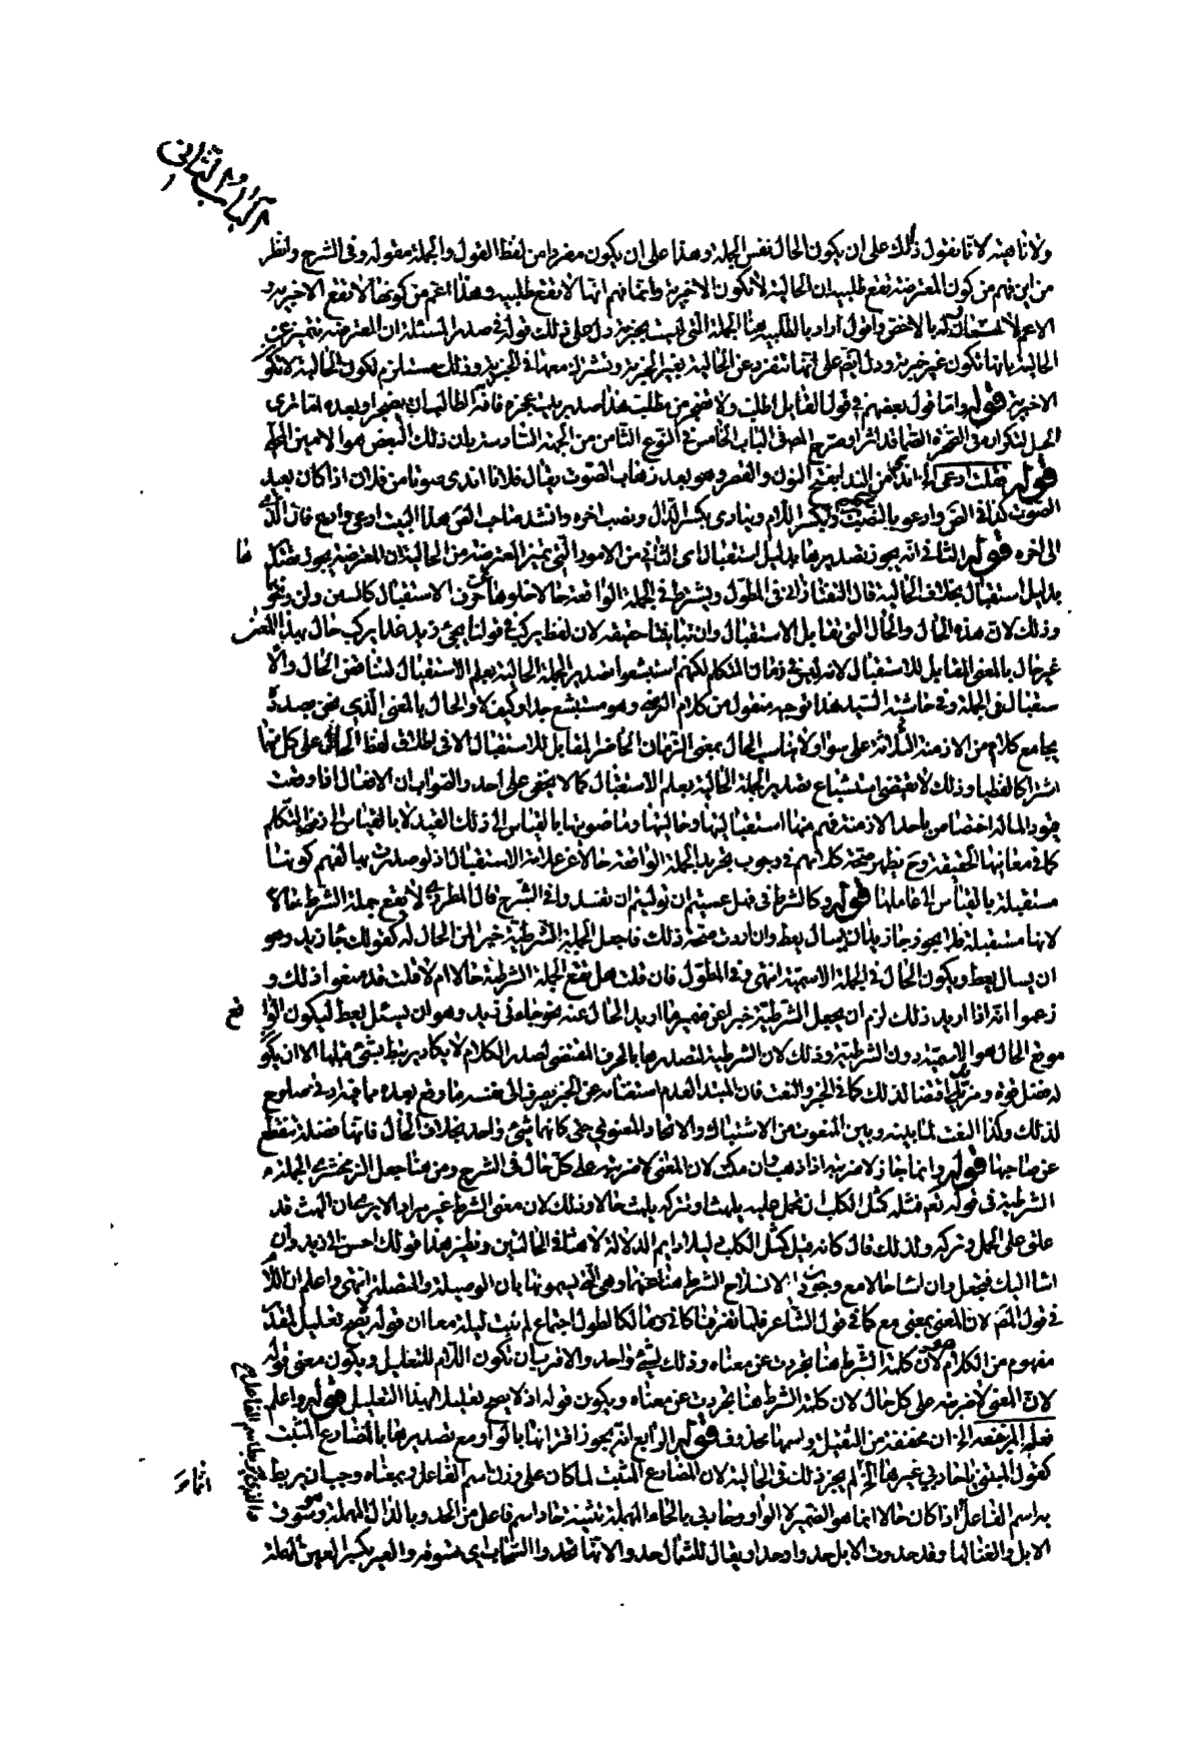 الباب الثاني
ولا تناهيه لانا نقول ذلك على ان يكون الحال نفس الجملة وهذا على ان يكون مفردا من لفظ القول والجملة مقوله وفى الشرح ولينظر
من اين فهم من كون المعترضة تقع طلبية ان الحالية لا تكون الا خبرية وانما فهم انها لا تقع طلبية وهذا اعم من كونها لا تقع الا خبرية و
الاعم لا يستدل به بالاخص واقول اراد بالطلبية هنا الجملة التى ليست بخبرية ودل على ذلك قوله فى صدر المسئلة ان المعترضة تتميز عن
الحالية بانها تكون غير خبرية ودل ايضا على انها تنفرد عن الحالية بغير الخبرية وتشترك معها فى الخبرية وذلك مستلزم لكون الحالية لا تكو
الا خبرية قوله واما قول بعضهم فى قول القايل اطلب ولا تضجر من مطلب هذا صدر بيت عجزه فآفة الطالب ان يضجرا وبعده اما ترى
الحبل بتكراره فى الصخرة الصماء قد اثرا وصرح المص فى الباب الخامس فى النوع الثامن من الجهة السادسة بان ذلك البعض هو الامين المحلى
قوله فقلت ادعى اندى من الندا بفتح النون والقصر وهو بعد ذهاب الصوت يقال فلان اندى صوتا من فلان اذا كان بعيد
الصوت كذا فى الصحاح وادعو بالنصب وليكسر اللام وينادى بكسر الدال ونصب اخره وانشد صاحب الصحاح هذا البيت ادعى وادع فان اندى
الى اخره قوله الثانى انه يجوز تصديرها بدليل استقبال اى الثانى من الامور التى تميز المعترضة من الحالية ان المعترضة يجوز تصديرها
بدليل استقبال بخلاف الحالية قال التفتازانى فى المطول ويشترط فى الجملة الواقعة حالا خلوها عن حرف الاستقبال كالسين ولن ونحوها
وذلك لان هذه الحال والحال التى تقابل الاستقبال وان تباينتا حقيقة لان لفظ يركب فى قولنا يجئ زيد غدا يركب حال بهذا المعنى
غير حال بالمعنى المقابل للاستقبال لانه ليس فى زمان التكلم لكنهم استبشعوا تصدير الجملة الحالية بعلم الاستقبال لتناقض الحال والا
ستقبال فى الجملة وفى حاشية السيد هذا توجيه منقول من كلام الرضى وهو مستبشع جدا وكيف لا والحال بالمعنى الذى نحن بصدده
يجامع كلا من الازمنة الثلاثة على سواء ولا يناسب الحال بمعنى الزمان الحاضر المقابل للاستقبال الا فى اطلاق لفظ الحال على كل منهما
اشتراكا لفظيا وذلك لا يقتضى استبشاع تصدير الجملة الحالية بعلم الاستقبال كما لا يخفى على احد والصواب ان الافعال اذا وقعت
قيودا لما له اختصاص باحد الازمنة فهم منها استقباليتها وحاليتها وماضويتها بالقياس الى ذلك القيد لا بالقياس الى زمن التكلم
كما فى معانيها الحقيقية وح يظهر صحة كلامهم فى وجوب تجريد الجملة الواقعة حالا عن علامة الاستقبال اذ لو صدرت بها لفهم كونها
مستقبلة بالقياس الى عاملها قوله وكالشرط فى فهل عسيتم ان توليتم ان تفسدوا فى الشرح قال المطرزى لا يقع جملة الشرط حالا
لانها مستقبلة فلا يجوز جاء زيد ان يسال يعط وان اردت صحة ذلك فاجعل الجملة الشرطية خبرا عن الحال له كقولك جاء زيد وهو
ان يسال يعط ويكون الحال فى الجملة الاسمية انتهى وفى المطول فان قلت هل تقع الجملة الشرطية حالا ام لا قلت قد منعوا ذلك و
زعموا انه اذا اريد ذلك لزم ان يجعل الشرطية خبرا عن ضمير ما اريد الحال عنه نحو جاءنى زيد وهو ان يسئل يعط ليكون الواقع
موقع الحال هو الاسمية دون الشرطية وذلك لان الشرطية لتصدرها بالحرف المقتضى لصدر الكلام لا يكاد يرتبط بشئ قبلها الا ان يكو
له فضل قوة ومزيد اقتضا لذلك كما فى الخبر والنعت فان المبتدا لعدم استغنائه عن الخبر يصرف الى نفسه ما وقع بعده مما فيه ادنى صلوح
لذلك وكذا النعت لما بينه وبين المنعوت من الاشتباك والاتحاد المعنوى حتى كانهما شئ واحد بخلاف الحال فانها فضلة تنقطع
عن صاحبها قوله وانما جاز لاضربنه ان ذهب وان مكث لان المعنى لاضربنه على كل حال فى الشرح ومن هنا جعل الزمخشرى الجملة
الشرطية فى قوله تعم فمثله كمثل الكلب ان تحمل عليه يلهث او تتركه يلهث حالا وذلك لان معنى الشرط غير مراد الا يرى ان اللهث قد
علق على الحمل وتركه ولذلك قال كانه قيل كمثل الكلب ذليلا دايم الذلة لاهثا فى الحالتين ونظير هذا قولك احسن الى زيد وان
اساء اليك فجعل وان اساء حالا مع وجود الانسلاخ الشرط هنا عنهما وهى التى يسمونها بان الوصيلة والمتصلة انتهى واعلم ان اللام
فى قول المص لان المعنى بمعنى مع كما فى قول الشاعر فلما تفرقنا كانى ومالكا لطول اجتماع لم نبت ليلة معا ان قوله يصح تعليل لمقد
مفهوم من الكلام هو لان كلمة الشرط هنا تجردت عن معناه وذلك لشئ واحد والاقرب ان تكون اللام للتعليل ويكون معنى قوله
لان المعنى لاضربنه على كل حال لان كلمة الشرط هنا تجردت عن معناه ويكون قوله اذ لا يصح تعليلا لهذا التعليل قوله واعلم
فعلم المرء ينفعه الخ ان مخففة من الثقيلة واسمها محذوف قوله الرابع انه يجوز اقترانها بالواو مع تصديرها بالمضارع المثبت
كقول المتنبى يا حاديى عيرها الخ لم يجز ذلك فى الحالية لان المضارع المثبت لما كان على وزن اسم الفاعل وبمعناه وجب ان يربط
به اسم الفاعل اذا كان حالا انما هو الضمير لا الواو وحاديى بالحاء المهملة تثنية حاد اسم فاعل من الحدو بالدال المهملة وهو سوق
الابل والغنا لها وقد حدوت الابل حدوا وحداء ويقال للشمال حدواء لانها تحدوا السحاب اى تسوقه والعير بكسر العين المهملة